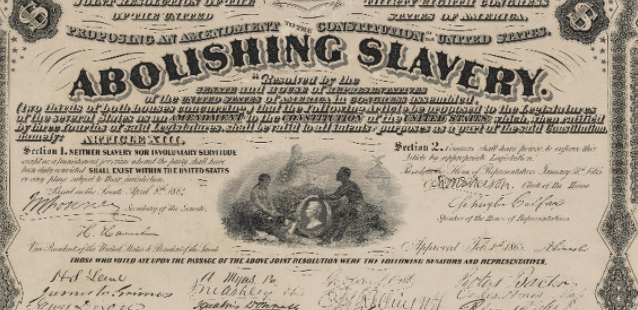 JOINT RESOLUTION OF THE THIRTY EIGHTH CONGRESS
OF THE UNITED STATES OF AMERICA,
PROPOSING AN AMENDMENT TO THE CONSTITUTION OF THE UNITED STATES.
ABOLISHING SLAVERY.
"Resolved by the
SENATE AND HOUSE OF REPRESENTATIVES
of the UNITED STATES OF AMERICA IN CONGRESS ASSEMBLED,
(two thirds of both houses concurring) that the following Article be proposed to the Legislatures
of the several States as an AMENDMENT TO the CONSTITUTION OF the UNITED STATES which, when ratified
by three fourths of said Legislatures, shall be valid to all intents & purposes as a part of the said Constitution.
namely: ARTICLE XIII.
Section 1. NEITHER SLAVERY NOR INVOLUNTARY SERVITUDE
except as a punishment for crime whereof the party shall have
been duly convicted SHALL EXIST WITHIN THE UNITED STATES
or any place subject to their jurisdiction.
Passed in the Senate April 8th 1864
Secretary of the Senate.
H. Hamlin
Vice President of the United States & President of the Senate
Section 2. Congress shall have power to enforce this
Article by appropriate Legislation.
House of Representatives, January 31st 1865
Clerk of the House
Schuyler Colfax
Speaker of the House of Representatives
Approved Feb. 1st 1865 A. Lincoln
THOSE WHO VOTED AYE UPON THE PASSAGE OF THE ABOVE JOINT RESOLUTION WERE THE FOLLOWING SENATORS AND REPRESENTATIVES.